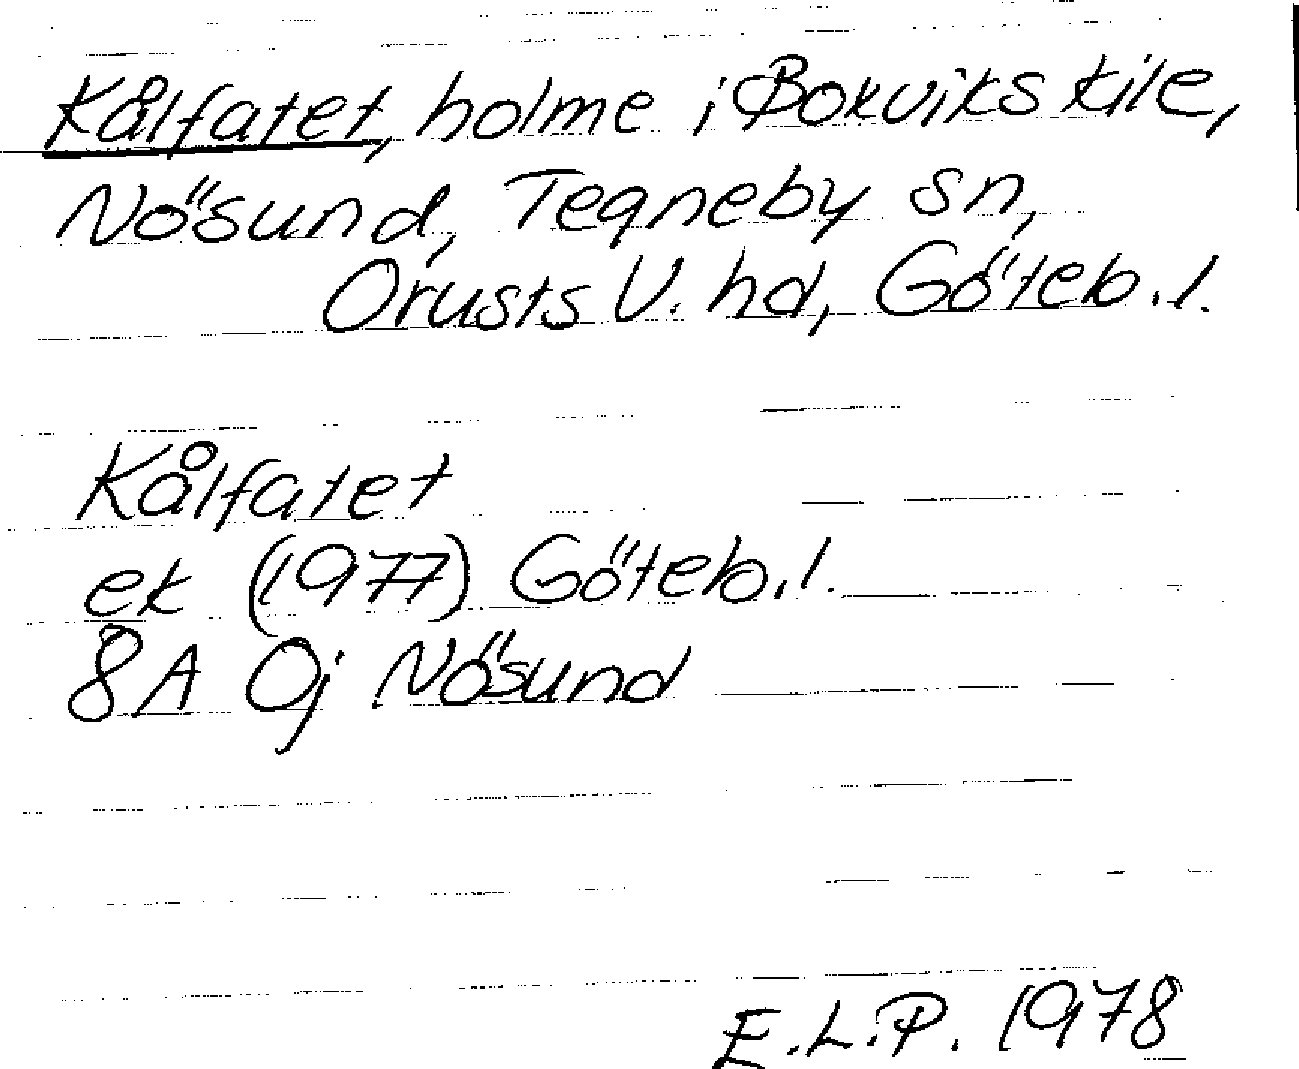 Kålfatet, holme i Bokviks kile,
Nösund, Tegneby sn,
Orusts V. hd, Göteb. l.
Kålfatet
ek (1977) Göteb. l.
8A Oj Nösund
E.L.P. 1978